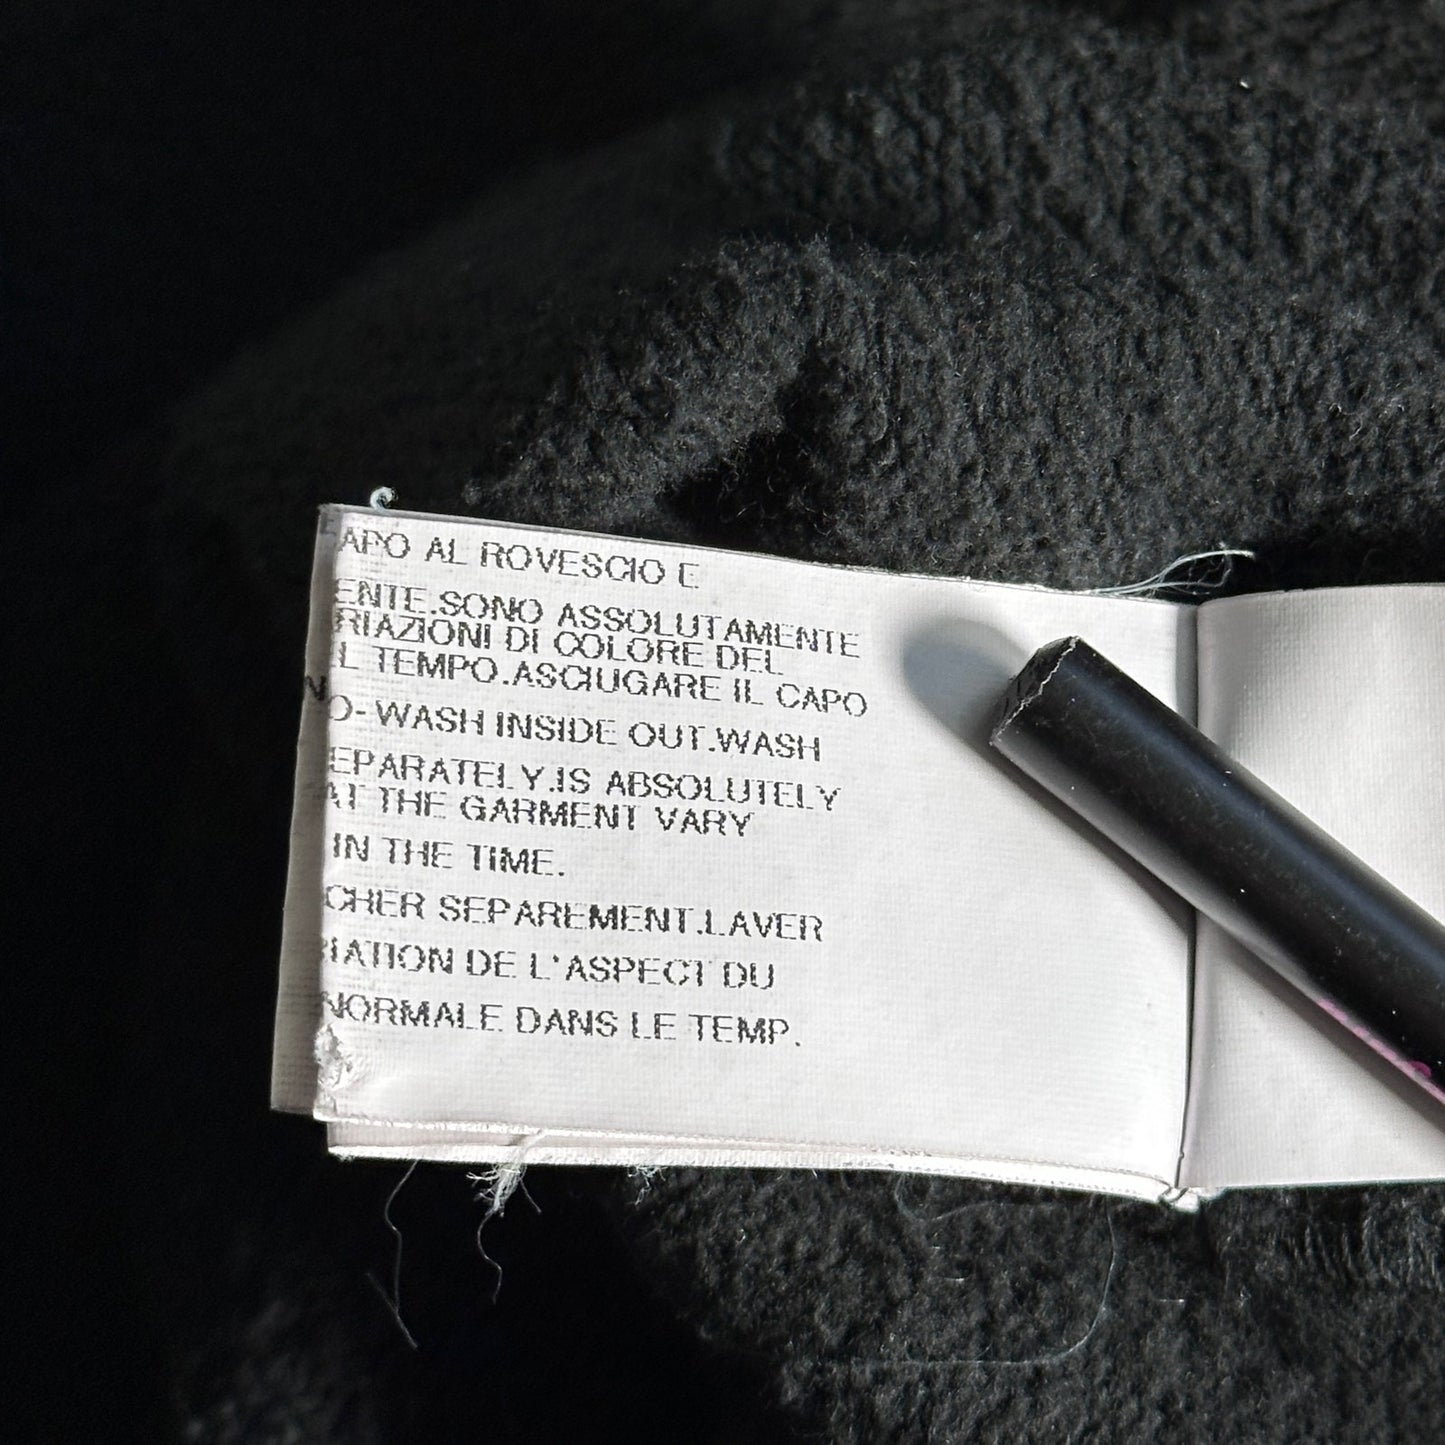 APO AL ROVESCIO E
ENTE.SONO ASSOLUTAMENTE
RIAZIONI DI COLORE DEL
L TEMPO.ASCIUGARE IL CAPO
O-WASH INSIDE OUT.WASH
EPARATELY.IS ABSOLUTELY
AT THE GARMENT VARY
IN THE TIME.
CHER SEPAREMENT.LAVER
IATION DE L'ASPECT DU
NORMALE DANS LE TEMP.